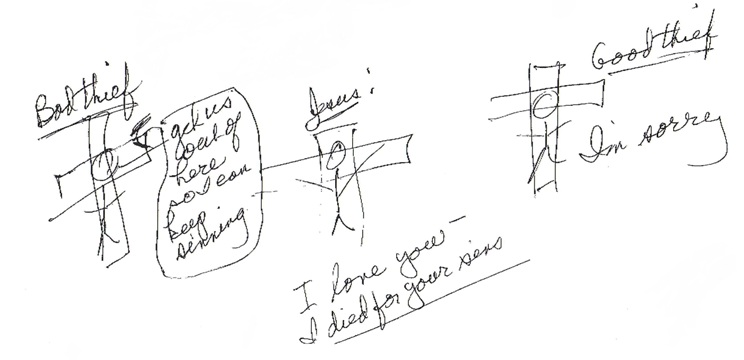 Bad thief
get us
out of
here
so I can
keep
sinning
Jesus:
I love you –
I died for your sins
Good thief
I'm sorry